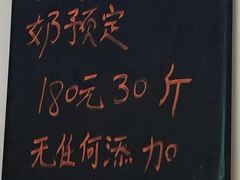 奶预定
180元30斤
无任何添加